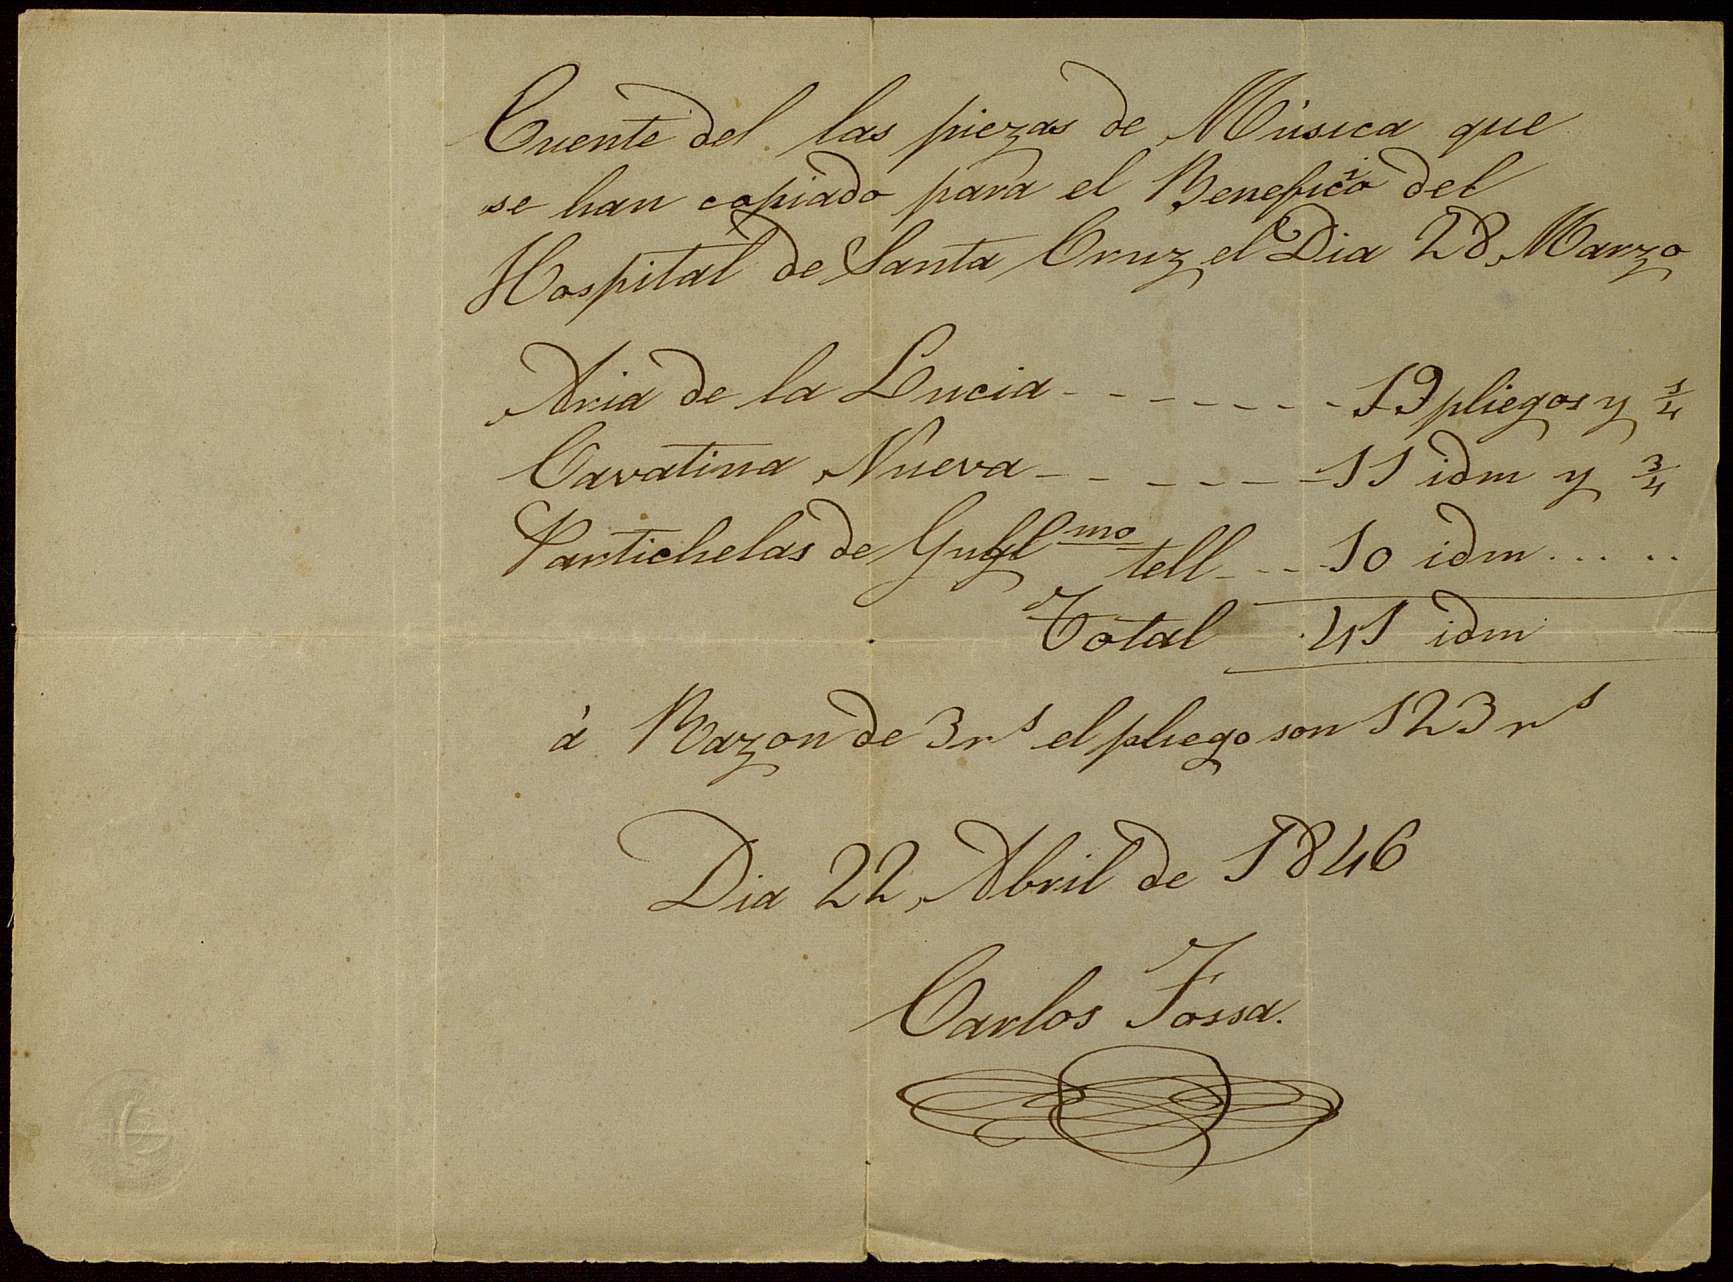 Cuente del las piezas de Música que
se han copiado para el Beneficio del
Hospital de Santa Cruz el Dia 28 Marzo
Aria de la Lucia - - - - - - - 19 pliegos y 1/4
Cavatina Nueva - - - - - - - 11 idm y 3/4
Partichelas de Gugl mo tell - - - 10 idm . . . . .
Total 41 idm
à Razon de 3 rs el pliego son 123 rs
Dia 22 Abril de 1846
Carlos Fossa.